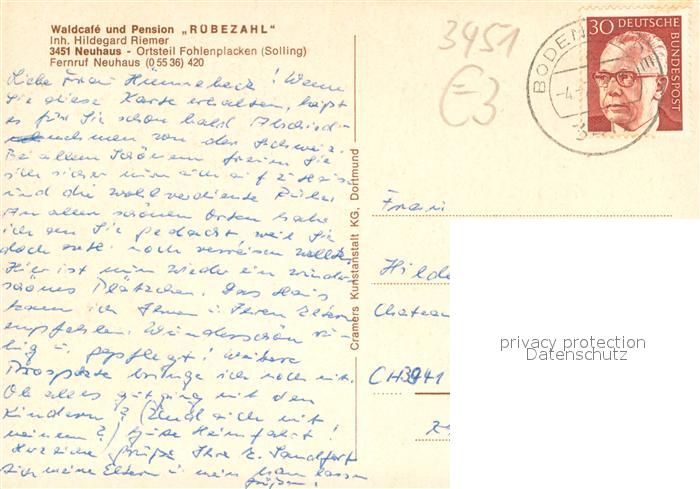 Waldcafé und Pension „RÜBEZAHL"
Inh. Hildegard Riemer
3451 Neuhaus - Ortsteil Fohlenplacken (Solling)
Fernruf Neuhaus (0 55 36) 420
Liebe Frau Hünnebeck! Wenn
Sie diese Karte erhalten, heißt
es für Sie schon bald Abschied-
nehmen von der Schweiz.
Bei allem Schönem freuen Sie
sich sicher nun auch auf zu Haus
und die wohlverdiente Ruhe.
An allen schönen Orten habe
ich an Sie gedacht weil Sie
doch noch verreisen wollten
Hier ist nun wieder ein wunder-
schönes Plätzchen. Das Haus
kann ich Ihnen u. Ihren Eltern
empfehlen. Wunderschön ru-
hig u. gepflegt! Weitere
Prospekte bringe ich noch mit.
Ob alles gut ging mit den
Kindern? (Und auch mit
meinem?) Gute Heimfahrt!
Herzliche Grüße Ihre E. Sandfort
Auch meine Eltern u. mein Mann lassen
grüßen!
Cramers Kunstanstalt KG, Dortmund
3451
E3
BODEN
30 DEUTSCHE
BUNDESPOST
Frau
Hilde
Chateau
CH 3941
privacy protection
Datenschutz